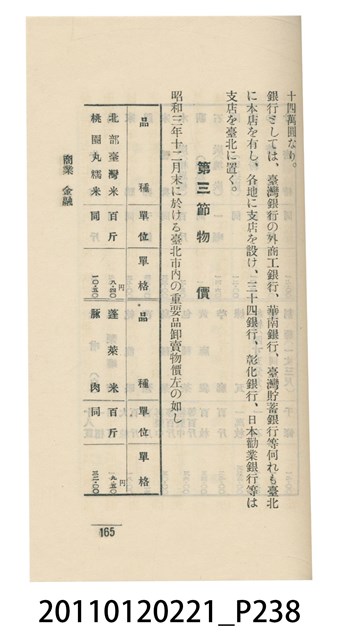 十四萬圓なり。
銀行としては、臺灣銀行の外商工銀行、華南銀行、臺灣貯蓄銀行等何れも臺北
に本店を有し、各地に支店を設け、三十四銀行、彰化銀行、日本勸業銀行等は
支店を臺北に置く。
第三節 物價
昭和三年十二月末に於ける臺北市內の重要品卸賣物價左の如し
品種 單位 單格 品種 單位 單格
北部臺灣米 百斤 八・四〇円 蓬萊米 百斤 九・五〇円
桃園丸糯米 同 一〇・五〇 豚肉 同 三三・〇〇
商業 金融
165
20110120221_P238